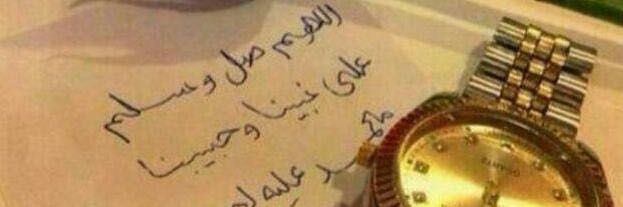 اللهم صل وسلم
على نبينا وحبيبنا
محمد عليه
QUARTZ